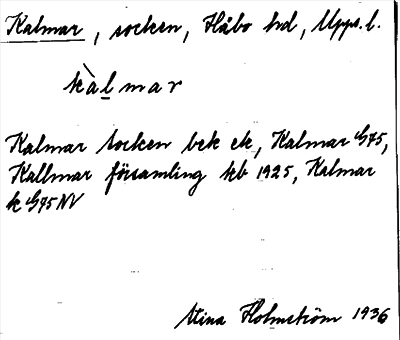 Kalmar, socken, Håbo hd, Upps. l.
kàlmar
Kalmar socken bek ek, Kalmar G75,
Kallmar församling kb 1925, Kalmar
k G75 NV
Stina Holmström 1936